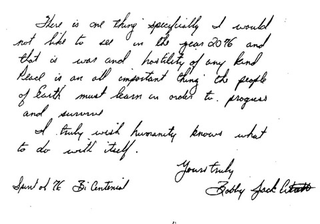 There is one thing specifically I would
not like to see in the year 2076 and
that is war and hostility of any kind
Peace is an all important thing the people
of Earth must learn in order to progress
and survive
I truly wish humanity knows what
to do with itself.
Yours truly
Spirit of 76 Bi Centenial
Bobby Jack